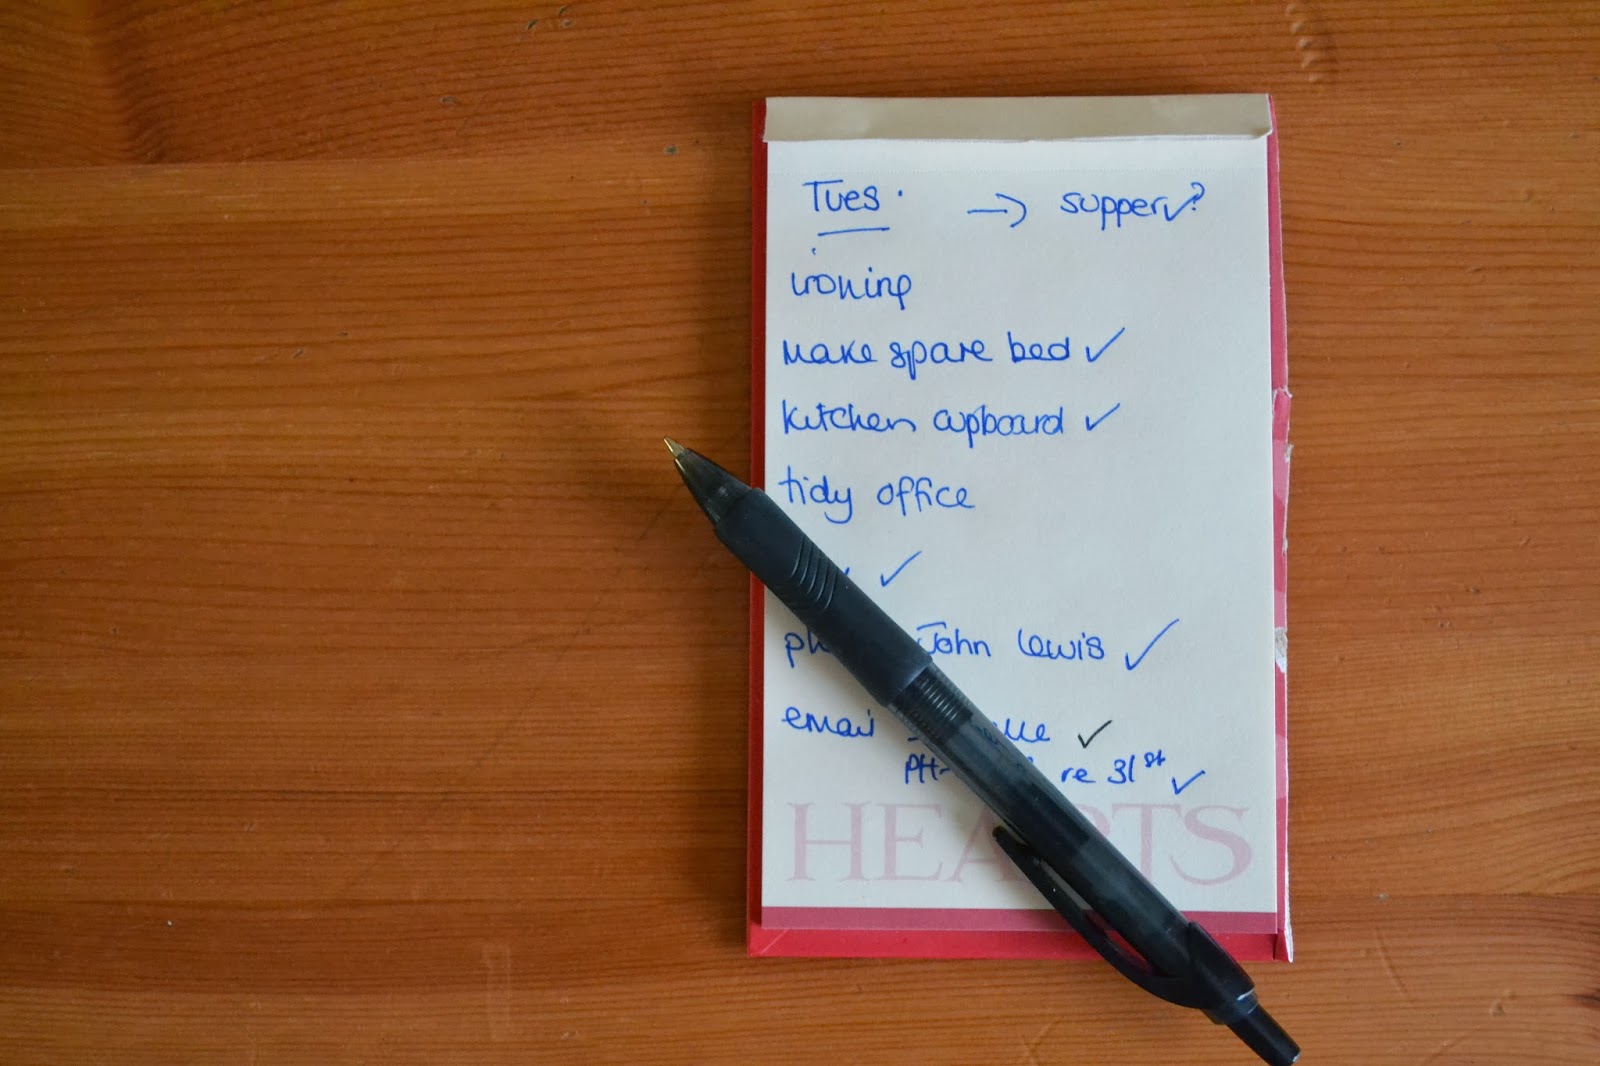 Tues. → supper✓?
ironing
make spare bed ✓
kitchen cupboard ✓
tidy office
✓
John Lewis ✓
email ✓
re 31st ✓
HEARTS